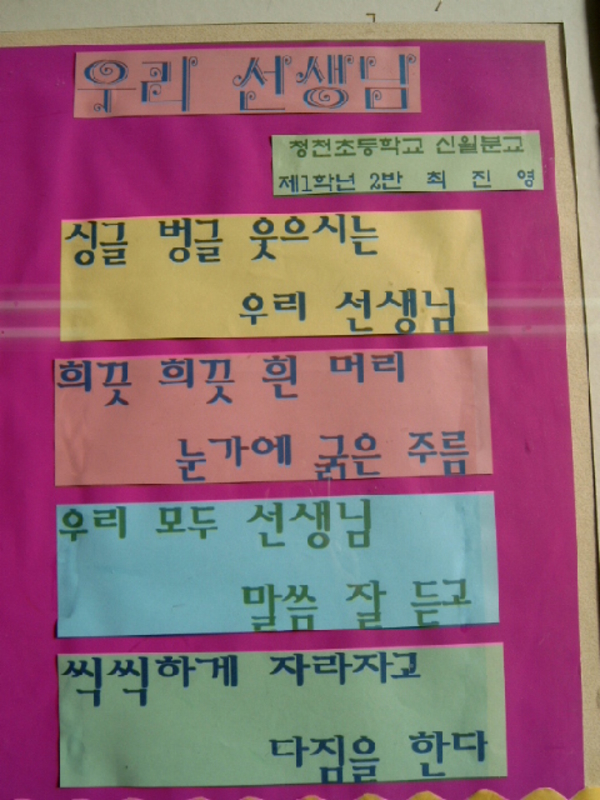 우리 선생님
청전초등학교 신월분교
제1학년 2반 최 진 영
싱글 벙글 웃으시는
우리 선생님
희끗 희끗 흰 머리
눈가에 굵은 주름
우리 모두 선생님
말씀 잘 듣고
씩씩하게 자라자고
다짐을 한다